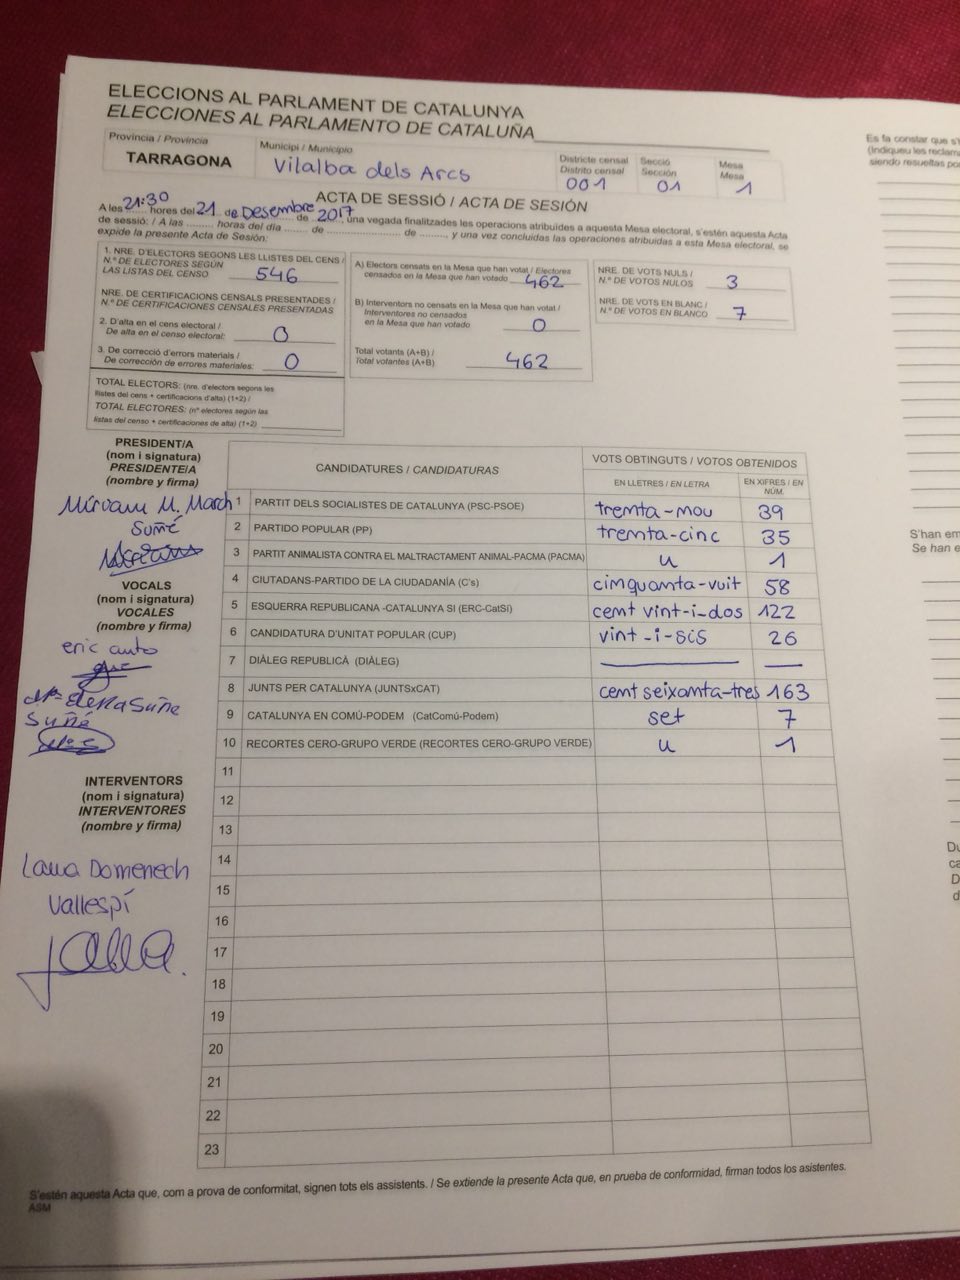 ELECCIONS AL PARLAMENT DE CATALUNYA
ELECCIONES AL PARLAMENTO DE CATALUÑA
Província / Provincia
TARRAGONA
Municipi / Municipio
Vilalba dels Arcs
Districte censal
Distrito censal
001
Secció
Sección
01
Mesa
Mesa
1
ACTA DE SESSIÓ / ACTA DE SESIÓN
A les 21:30 hores del 21 de Desembre de 2017, una vegada finalitzades les operacions atribuïdes a aquesta Mesa electoral, s'estén aquesta Acta
de sessió: / A las ......... horas del día ........ de ............................ de ........, y una vez concluidas las operaciones atribuidas a esta Mesa electoral, se
expide la presente Acta de Sesión:
1. NRE. D'ELECTORS SEGONS LES LLISTES DEL CENS /
N.º DE ELECTORES SEGÚN
LAS LISTAS DEL CENSO 546
NRE. DE CERTIFICACIONS CENSALS PRESENTADES /
N.º DE CERTIFICACIONES CENSALES PRESENTADAS
2. D'alta en el cens electoral /
De alta en el censo electoral: 0
3. De correcció d'errors materials /
De corrección de errores materiales: 0
TOTAL ELECTORS: (nre. d'electors segons les
llistes del cens + certificacions d'alta) (1+2) /
TOTAL ELECTORES: (nº electores según las
listas del censo + certificaciones de alta) (1+2)
A) Electors censats en la Mesa que han votat / Electores
censados en la Mesa que han votado 462
B) Interventors no censats en la Mesa que han votat /
Interventores no censados
en la Mesa que han votado 0
Total votants (A+B) /
Total votantes (A+B) 462
NRE. DE VOTS NULS /
N.º DE VOTOS NULOS 3
NRE. DE VOTS EN BLANC /
N.º DE VOTOS EN BLANCO 7
PRESIDENT/A
(nom i signatura)
PRESIDENTE/A
(nombre y firma)
Miryam M. March
Suñé
VOCALS
(nom i signatura)
VOCALES
(nombre y firma)
eric
Suñe
Suñé
INTERVENTORS
(nom i signatura)
INTERVENTORES
(nombre y firma)
Laura Domenech
Vallespí
CANDIDATURES / CANDIDATURAS
VOTS OBTINGUTS / VOTOS OBTENIDOS
EN LLETRES / EN LETRA
EN XIFRES / EN
NÚM.
1 PARTIT DELS SOCIALISTES DE CATALUNYA (PSC-PSOE) trenta-nou 39
2 PARTIDO POPULAR (PP) trenta-cinc 35
3 PARTIT ANIMALISTA CONTRA EL MALTRACTAMENT ANIMAL-PACMA (PACMA) u 1
4 CIUTADANS-PARTIDO DE LA CIUDADANÍA (C's) cinquanta-vuit 58
5 ESQUERRA REPUBLICANA -CATALUNYA SI (ERC-CatSí) cent vint-i-dos 122
6 CANDIDATURA D'UNITAT POPULAR (CUP) vint-i-sis 26
7 DIÀLEG REPUBLICÀ (DIÀLEG)
8 JUNTS PER CATALUNYA (JUNTSxCAT) cent seixanta-tres 163
9 CATALUNYA EN COMÚ-PODEM (CatComú-Podem) set 7
10 RECORTES CERO-GRUPO VERDE (RECORTES CERO-GRUPO VERDE) u 1
11
12
13
14
15
16
17
18
19
20
21
22
23
S'estén aquesta Acta que, com a prova de conformitat, signen tots els assistents. / Se extiende la presente Acta que, en prueba de conformidad, firman todos los asistentes.
ASM
Es fa constar que
(Indiqueu les
siendo resueltas
S'han
Se han